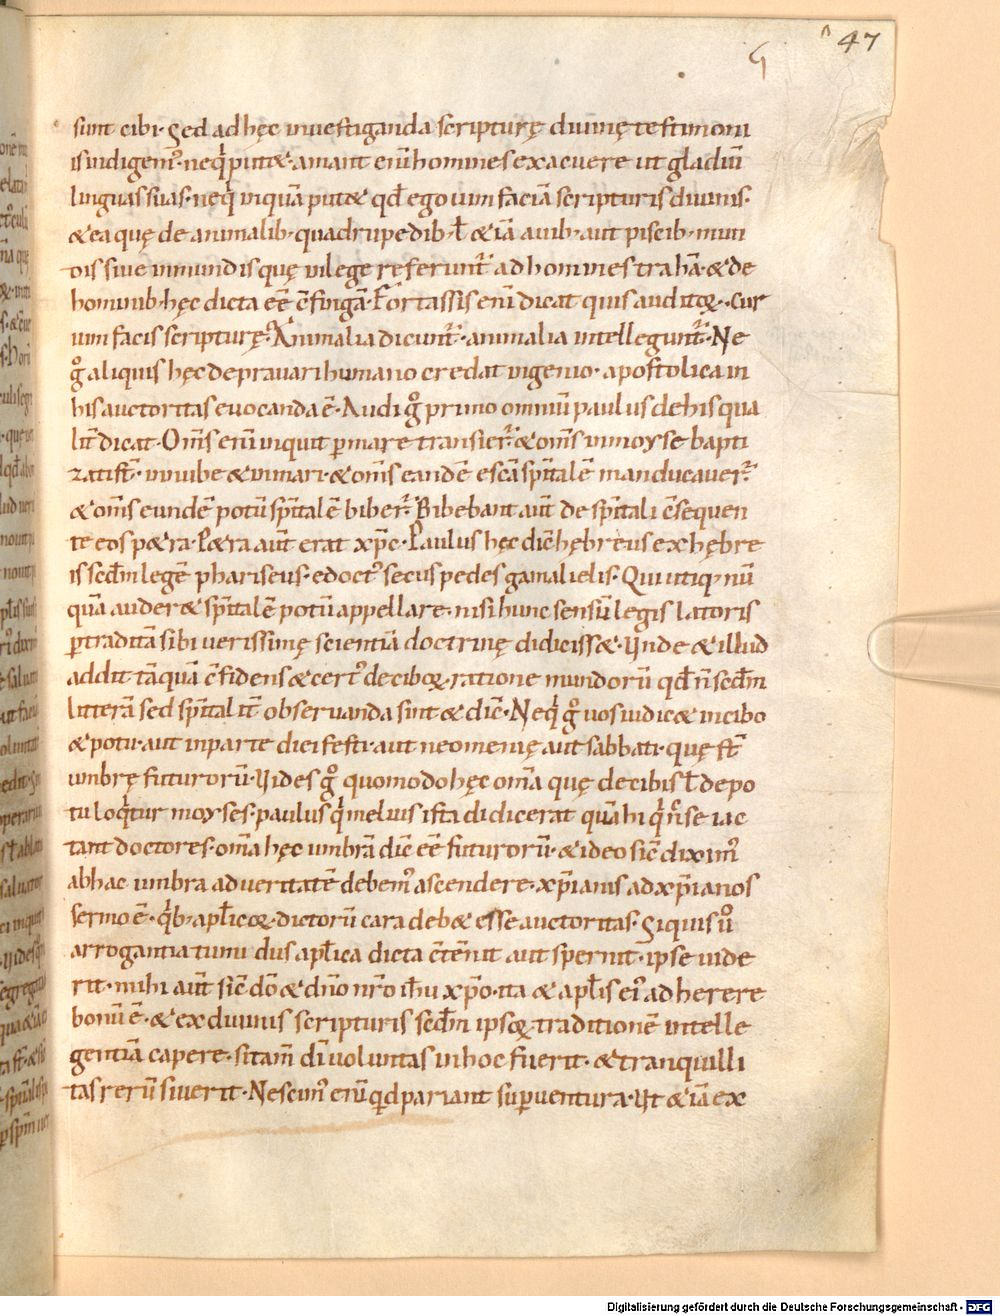 47
sunt cibi. Sed ad hęc inuestiganda scripturę diuinę testimoni
is indigem᷒. neq; putet. amant enī homines exacuere ut gladiū
linguas suas. neq; inquā putet qđ ego uim faciā scripturis diuinis.
& ea quę de animalib; quadrupedib; ł & iā auib; aut piscib; mun
dis siue inmundis quę in lege referunt̄ ad homines trahā. & de
hominib; hęc dicta eē c̄fingā. Fortassis enī dicat quis auditoꝝ. cur
uim facis scripturę? Animalia dicunt̄. animalia intellegunt̄. Ne
gͦ aliquis hęc deprauari humano credat ingenio. apostolica in
his auctoritas euocanda ē. Audi gͦ primo omniū paulus de his qua
lit̄ dicat. Om̄s enī inquit p̱ mare transier̄. & om̄s in moyse bapti
zati st̄. in nube & in mari. & om̄s eandē escā sp̄italē manducauer̄.
& om̄s eundē potū sp̄italē biber̄. Bibebant aūt de sp̄itali c̄sequen
te eos petra. Petra aūt erat xp̄c. Paulus hęc dīc hębreus ex hębre
is scd̄m legē phariseus. edoct᷒ secus pedes gamalielis. Qui utiq; nū
quā auderet sp̄italē potū appellare. nisi hunc sensū legis latoris
ꝑ traditā sibi uerissimę scientiā doctrinę didicisset. Unde & illud
addit tāquā c̄fidens & cert᷒ de ciboꝝ ratione mundorū qđ n̄ scd̄m
litterā sed sp̄italit̄ obseruanda sint & dīc. Neq; gͦ uos iudicet in cibo
& potu. aut in parte diei festi. aut neomenię aut sabbati. quę st̄
umbrę futurorū. Uides gͦ quomodo hęc om̄a quę de cibis ł de po
tu loq̇tur moyses. paulus q̇ melius ista didicerat quā hi q̇ n̄c se iac
tant doctores. om̄a hęc umbrā dīc eē futurorū. & ideo sic̄ dixim᷒
ab hac umbra ad ueritatē debem᷒ ascendere. xp̄ianis ad xp̄ianos
sermo ē. q̇b; apl̄icoꝝ dictorū cara debet esse auctoritas. Siquis ū̊
arrogantia tumidus apl̄ica dicta c̄tēnit aut spernit. ipse uide
rit. mihi aūt sic̄ dō & dn̄o nr̄o ihū xp̄o. ita & apl̄is ei᷒ adherere
bonū ē. & ex diuinis scripturis scd̄m ipsoꝝ traditionē intelle
gentiā capere. si tam̄ dī uoluntas in hoc fuerit. & tranquilli
tas rerū siuerit. Nescim᷒ enī qid pariant suꝑuentura. Ut & iā ex
Digitalisierung gefördert durch die Deutsche Forschungsgemeinschaft - DFG